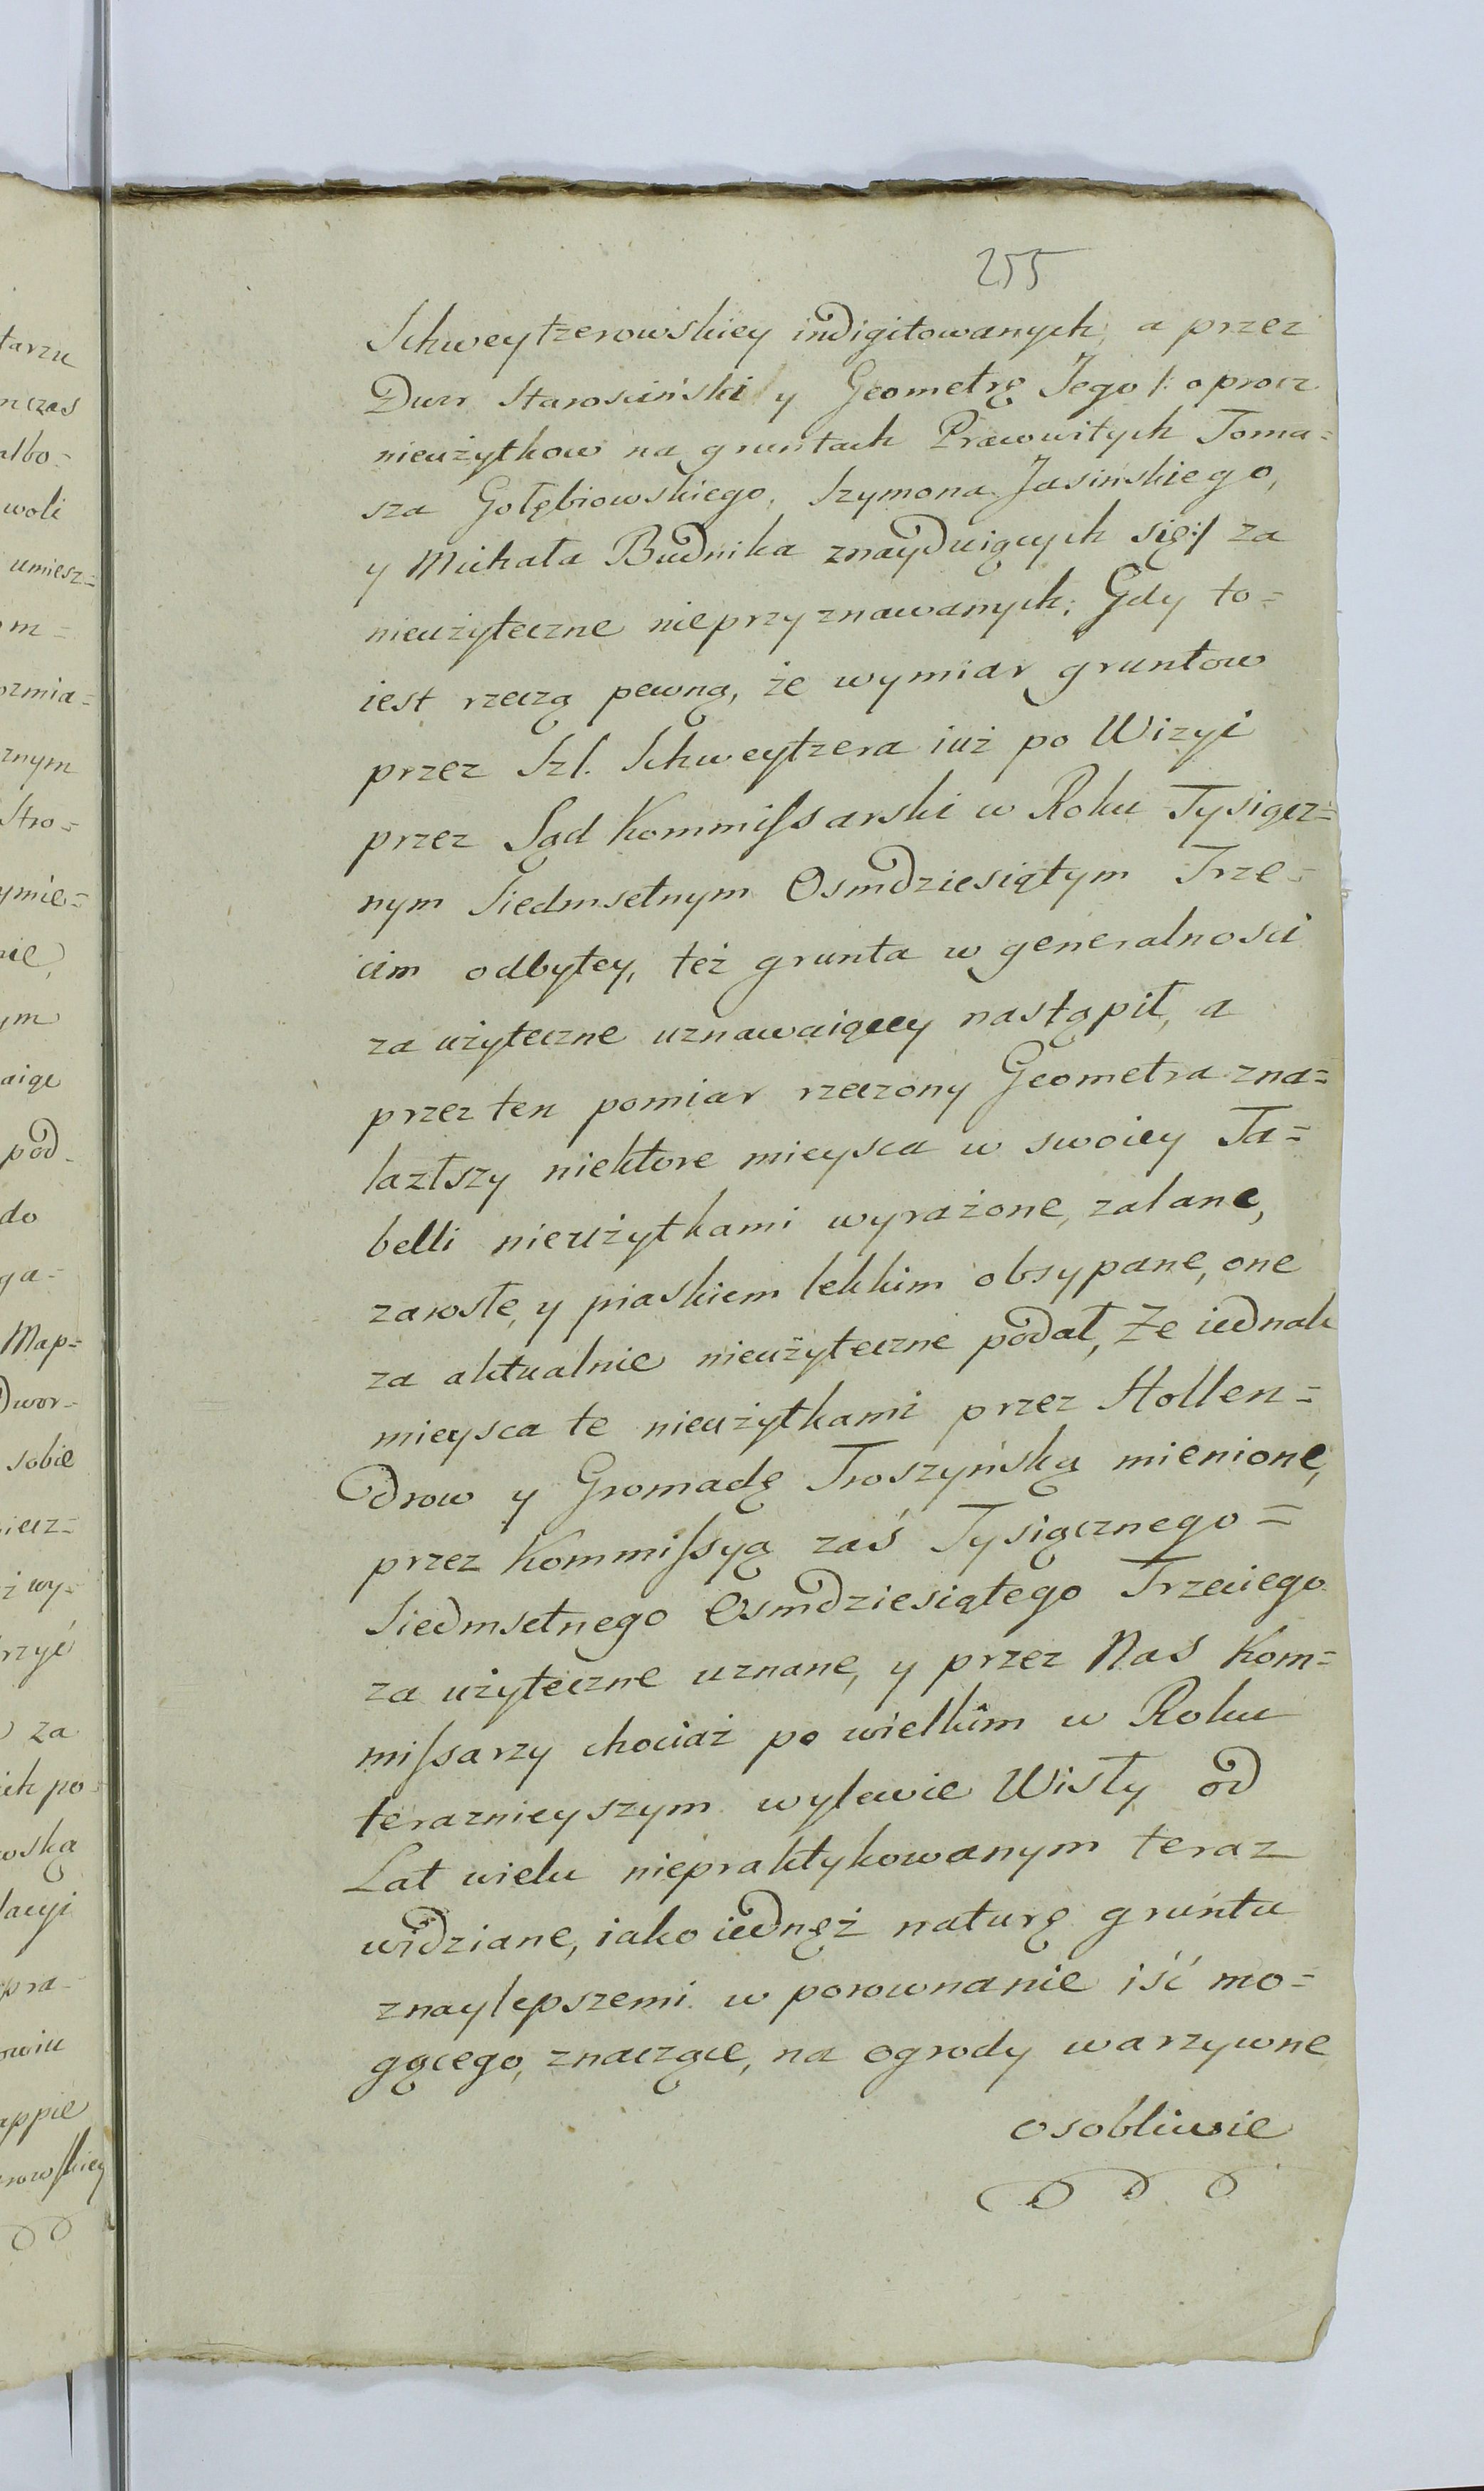 255
Schweytzerowskiey indigitowanych, a przez
Dwor Starosciński y Geometrę Jego /: oprocz
nieużytkow na gruntach Prawowitych Toma=
sza Gołębiowskiego, Szymona Jasińskiego,
y Michała Budnika znayduiących się:/ za
nieużyteczne nieprzyznawanych; Gdy to=
iest rzeczą pewną, że wymiar gruntow
przez Szl. Schweytzera iuż po Wizyi
przez Sąd Kommissarski w Roku Tysiącz=
nym Siedmsetnym Osmdziesiątym Trze=
cim odbytey, też grunta w generalnosci
za użyteczne uznawaiącey nastąpił, a
przez ten pomiar rzeczony Geometra zna=
laztszy niektore mieysca w swoiey Ta=
belli nieużytkami wyrażone, zalane,
zarosłe, y piaskiem lekkim obsypane, one
za aktualnie nieużyteczne podał, Że iednak
mieysca te nieużytkami przez Hollen=
drow y Gromadę Troszyńską mienione,
przez Kommissyą zaś Tysiącznego=
Siedmsetnego Osmdziesiątego Trzeciego
za użyteczne uznane, y przez Nas Kom=
missarzy chociaż po wielkim w Roku
teraznieyszym wylewie Wisły od
Lat wielu niepraktykowanym teraz
widziane, iako iednęż naturę gruntu
znaylepszemi w porownanie iść mo=
gącego, znaczące, na ogrody warzywne
osobliwie
tarzu
nczas
albo=
woli
umiesz=
m=
ozmia=
znym
Stro=
ymie=
nie,
ym
aiąc
pod
do
ga=
Map=
Dwor=
sobie
iecz=
ż wy=
rzyć
za
ich po=
wską
lacyi
pra=
owiu
appie
rowskiey